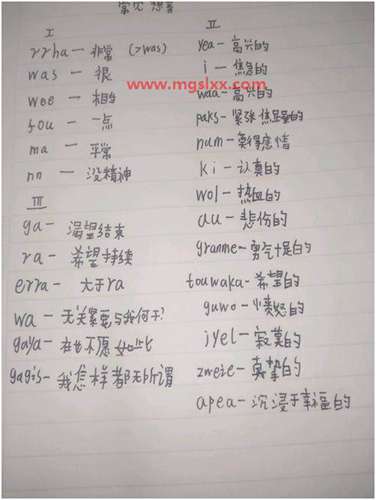 常见
I
rrha — 非常 (>was)
was — 很
wee — 相当
fou — 一点
ma — 平常
nn — 没精神
III
ga — 渴望结束
ra — 希望持续
erra — 大于ra
wa — 无关紧要与我何干?
gaya — 在也不愿如此
gagis — 我怎样都无所谓
II
yea — 高兴的
i — 焦急的
waa — 高兴的
paks — 紧张 焦虑的
num — 莫得感情
ki — 认真的
wol — 热血的
au — 悲伤的
granme — 勇气十足的
touwaka — 希望的
guwo — 愤怒的
jyel — 寂寞的
zweie — 真挚的
apea — 沉浸于幸福的
www.mgslxx.com